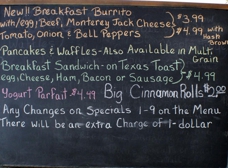 New!! Breakfast Burrito
with/egg, Beef, Monterey Jack Cheese, $3.99
Tomato, Onion & Bell Peppers $4.99 with Hash Brown
Pancakes & Waffles-Also Available in Multi Grain
Breakfast Sandwich-on Texas Toast
egg, Cheese, Ham, Bacon or Sausage $4.99
Yogurt Parfait $4.49 Big Cinnamon Rolls $2.00
Any Changes on Specials 1-9 on the Menu
There will be an extra Charge of 1-dollar